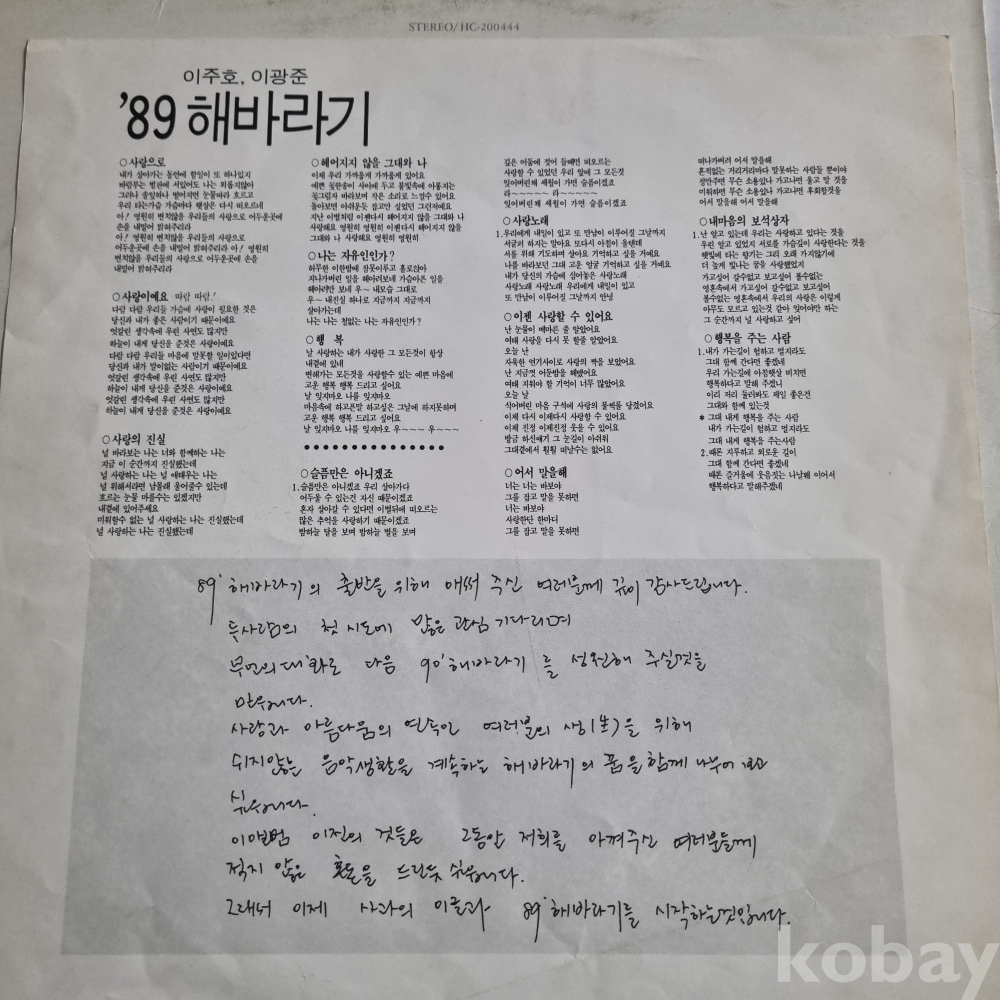 STEREO/HC-200444
이주호, 이광준
'89 해바라기
○사랑으로
내가 살아가는 동안에 할일이 또 하나있지
바람부는 벌판에 서있어도 나는 외롭지않아
그러나 솔잎하나 떨어지면 눈물따라 흐르고
우리 타는가슴 가슴마다 햇살은 다시 떠오르네
아! 영원히 변치않을 우리들의 사랑으로 어두운곳에
손을 내밀어 밝혀주리라
아! 영원히 변치않을 우리들의 사랑으로
어두운곳에 손을 내밀어 밝혀주리라 아! 영원히
변치않을 우리들의 사랑으로 어두운곳에 손을
내밀어 밝혀주리라
○사랑이예요 따람 따람!
다람 다람 우리들 가슴에 사랑이 필요한 것은
당신과 내가 좋은 사람이기 때문이예요
엇갈린 생각속에 우린 사연도 많지만
하늘이 내게 당신을 준것은 사랑이예요
다람 다람 우리들 마음에 말못할 일이있다면
당신과 내가 말이없는 사람이기 때문이예요
엇갈린 생각속에 우린 사연도 많지만
하늘이 내게 당신을 준것은 사랑이예요
엇갈린 생각속에 우린 사연도 많지만
하늘이 내게 당신을 준것은 사랑이예요
○사랑의 진실
널 바라보는 나는 너와 함께하는 나는
지금 이 순간까지 진실했는데
널 사랑하는 나는 널 애태우는 나는
널 위해서라면 남몰래 울어줄수 있는데
흐르는 눈물 마를수는 있겠지만
내곁에 있어주세요
미워할수 없는 널 사랑하는 나는 진실했는데
널 사랑하는 나는 진실했는데
○헤어지지 않을 그대와 나
이제 우리 가까웁게 가까웁게 있어요
예쁜 꽃한송이 사이에 두고 불빛속에 아롱지는
꽃그림자 바라보며 작은 소리로 느낄수 있어요
돌아보면 아쉬운듯 잠고만 싶었던 그런저예요
지난 이별처럼 이젠다시 헤어지지 않을 그대와 나
사랑해요 영원히 영원히 이젠다시 헤어지지 않을
그대와 나 사랑해요 영원히 영원히
○나는 자유인인가?
하루한 이한밤에 잠못이루고 홀로앉아
지나가버린 일을 헤아려보네 가슴아픈 일을
헤아려만 보네 우~ 내모습 그대로
우~ 내진실 하나로 지금까지 지금까지
살아가는데
나는 나는 철없는 나는 자유인인가?
○행 복
날 사랑하는 내가 사랑한 그 모든것이 항상
내곁에 있네
변해가는 모든것을 사랑할수 있는 예쁜 마음에
고운 행복 행복 드리고 싶어
날 잊지마오 나를 잊지마오
마음속에 하고픈말 하고싶은 그날에 하지못하며
고운 행복 행복 드리고 싶어라
날 잊지마오 나를 잊지마오 우~~~ 우~~~
○슬픔만은 아니겠죠
1. 슬픔만은 아니겠죠 우리 살아가다
어두울 수 있는건 자신 때문이겠죠
혼자 살아갈 수 있다면 이별뒤에 떠오르는
많은 추억을 사랑하기 때문이겠죠
밤하늘 달을 보며 밤하늘 별을 보며
짙은 어둠에 젖어 들때면 떠오르는
사랑할 수 있었던 우리 앞에 그 모든것
잊어버린채 세월이 가면 슬픔이겠죠
라~~~~~ 라~~~~~~
잊어버린채 세월이 가면 슬픔이겠죠
○사랑노래
1. 우리에게 내일이 있고 또 만남이 이루어질 그날까지
서글퍼 하지는 말아요 또다시 아침이 올텐데
서를 위해 기도하며 살아요 기억하고 싶을 거예요
나를 바라보던 그대 고운 얼굴 기억하고 싶을 거예요
내가 당신의 가슴에 심어놓은 사랑노래
사랑노래 사랑노래 우리에게 내일이 있고
또 만남이 이루어질 그날까지 안녕
○이젠 사랑할 수 있어요
난 눈물이 메마른 줄 알았어요
여태 사랑을 다시 못 할줄 알았어요
오늘 난
자욱한 연기사이로 사랑의 짝을 보았어요
난 지금껏 어둔밤을 헤맸어요
여태 지워야 할 기억이 너무 많았어요
오늘 날
식어버린 마음 구석에 사랑의 불씩를 당겼어요
이제 다시 이제다시 사랑할 수 있어요
이제 진정 이제진정 웃을 수 있어요
방금 하신얘기 그 눈길이 아쉬워
그대곁에서 훨훨 떠날수는 없어요
○어서 말을해
너는 너는 바보야
그를 잡고 말을 못하면
너는 바보야
사랑한단 한마디
그를 잡고 말을 못하면
떠나가버려 어서 말을해
흔적없는 거리거리마다 말못하는 사람들 뿐이야
정만주면 무슨 소용있나 가고나면 울고 말 것을
미워하면 무슨 소용있나 가고나면 후회할것을
어서 말을해 어서 말을해
○내마음의 보석상자
1. 난 알고 있는데 우리는 사랑하고 있다는 것을
우린 알고 있었지 서로를 가슴깊이 사랑한다는 것을
햇빛에 타는 향기는 그리 오래 가지않기에
더 높게 빛나는 꿈을 사랑했었지
가고싶어 갈수없고 보고싶어 볼수없는
영혼속에서 가고싶어 갈수없고 보고싶어
볼수없는 영혼속에서 우리의 사랑은 이렇게
아무도 모르고 있는것 같아 잊어야만 하는
그 순간까지 널 사랑하고 싶어
○행복을 주는 사람
1. 내가 가는길이 험하고 멀지라도
그대 함께 간다면 좋겠네
우리 가는길에 아침햇살 비치면
행복하다고 말해 주겠니
이리 저리 둘러봐도 제일 좋은건
그대와 함께 있는것
* 그대 내게 행복을 주는 사람
내가 가는길이 험하고 멀지라도
그대 내게 행복을 주는사람
2. 때론 지루하고 외로운 길이
그대 함께 간다면 좋겠네
때론 즐거움에 웃음짓는 나날페 이어서
행복하다고 말해주겠네
89' 해바라기의 출반을 위해 애써 주신 여러분께 깊이 감사드립니다.
둣사람의 첫 시도에 많은 관심 기다리며
무언의 대화로 다음 90' 해바라기를 성원해 주실것을
믿읍니다.
사랑과 아름다움의 연속인 여러분의 생(生)을 위해
쉬지않는 음악생활을 계속하는 해바라기의 꿈을 함께 나누어 갖고
싶읍니다.
이앨범 이전의 것들은 그동안 저희를 아껴주신 여러분들께
적지 않은 혼돈을 드린듯 싶읍니다.
그래서 이제 사과의 이글과 89' 해바라기를 시작하는것입니다.
kobay